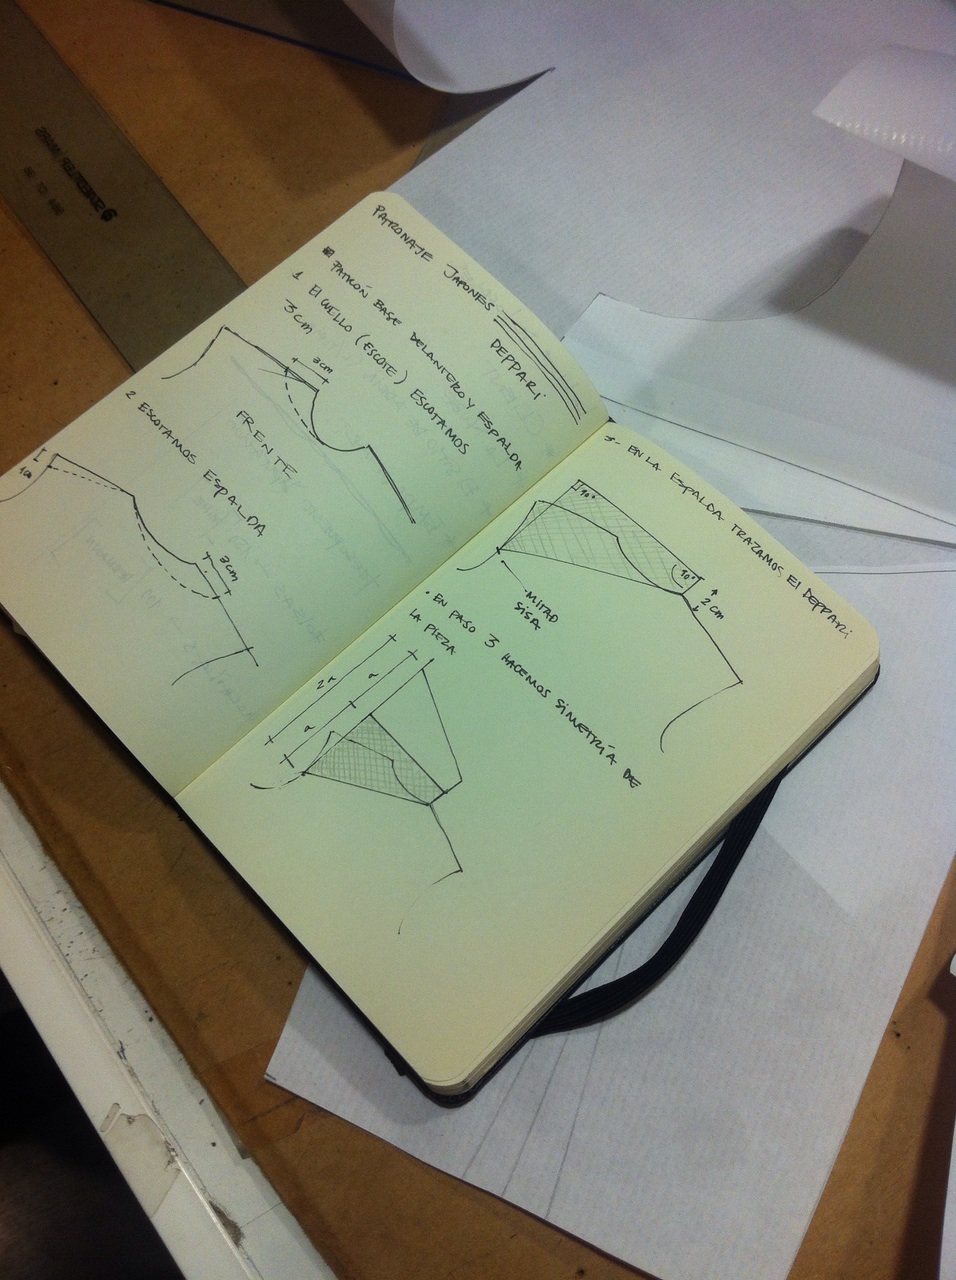 PATRONAJE JAPONES
DEPPARI
PATRÓN BASE DELANTERO Y ESPALDA
1 El CUELLO (ESCOTE) ESCOTAMOS
3 cm
3cm
FRENTE
2 ESCOTAMOS ESPALDA
1cm
3cm
3- EN LA ESPALDA TRAZAMOS El DEPPARi
90°
90°
2 cm
MITAD
SISA
• EN PASO 3 HACEMOS SIMETRÍA DE
LA PIEZA